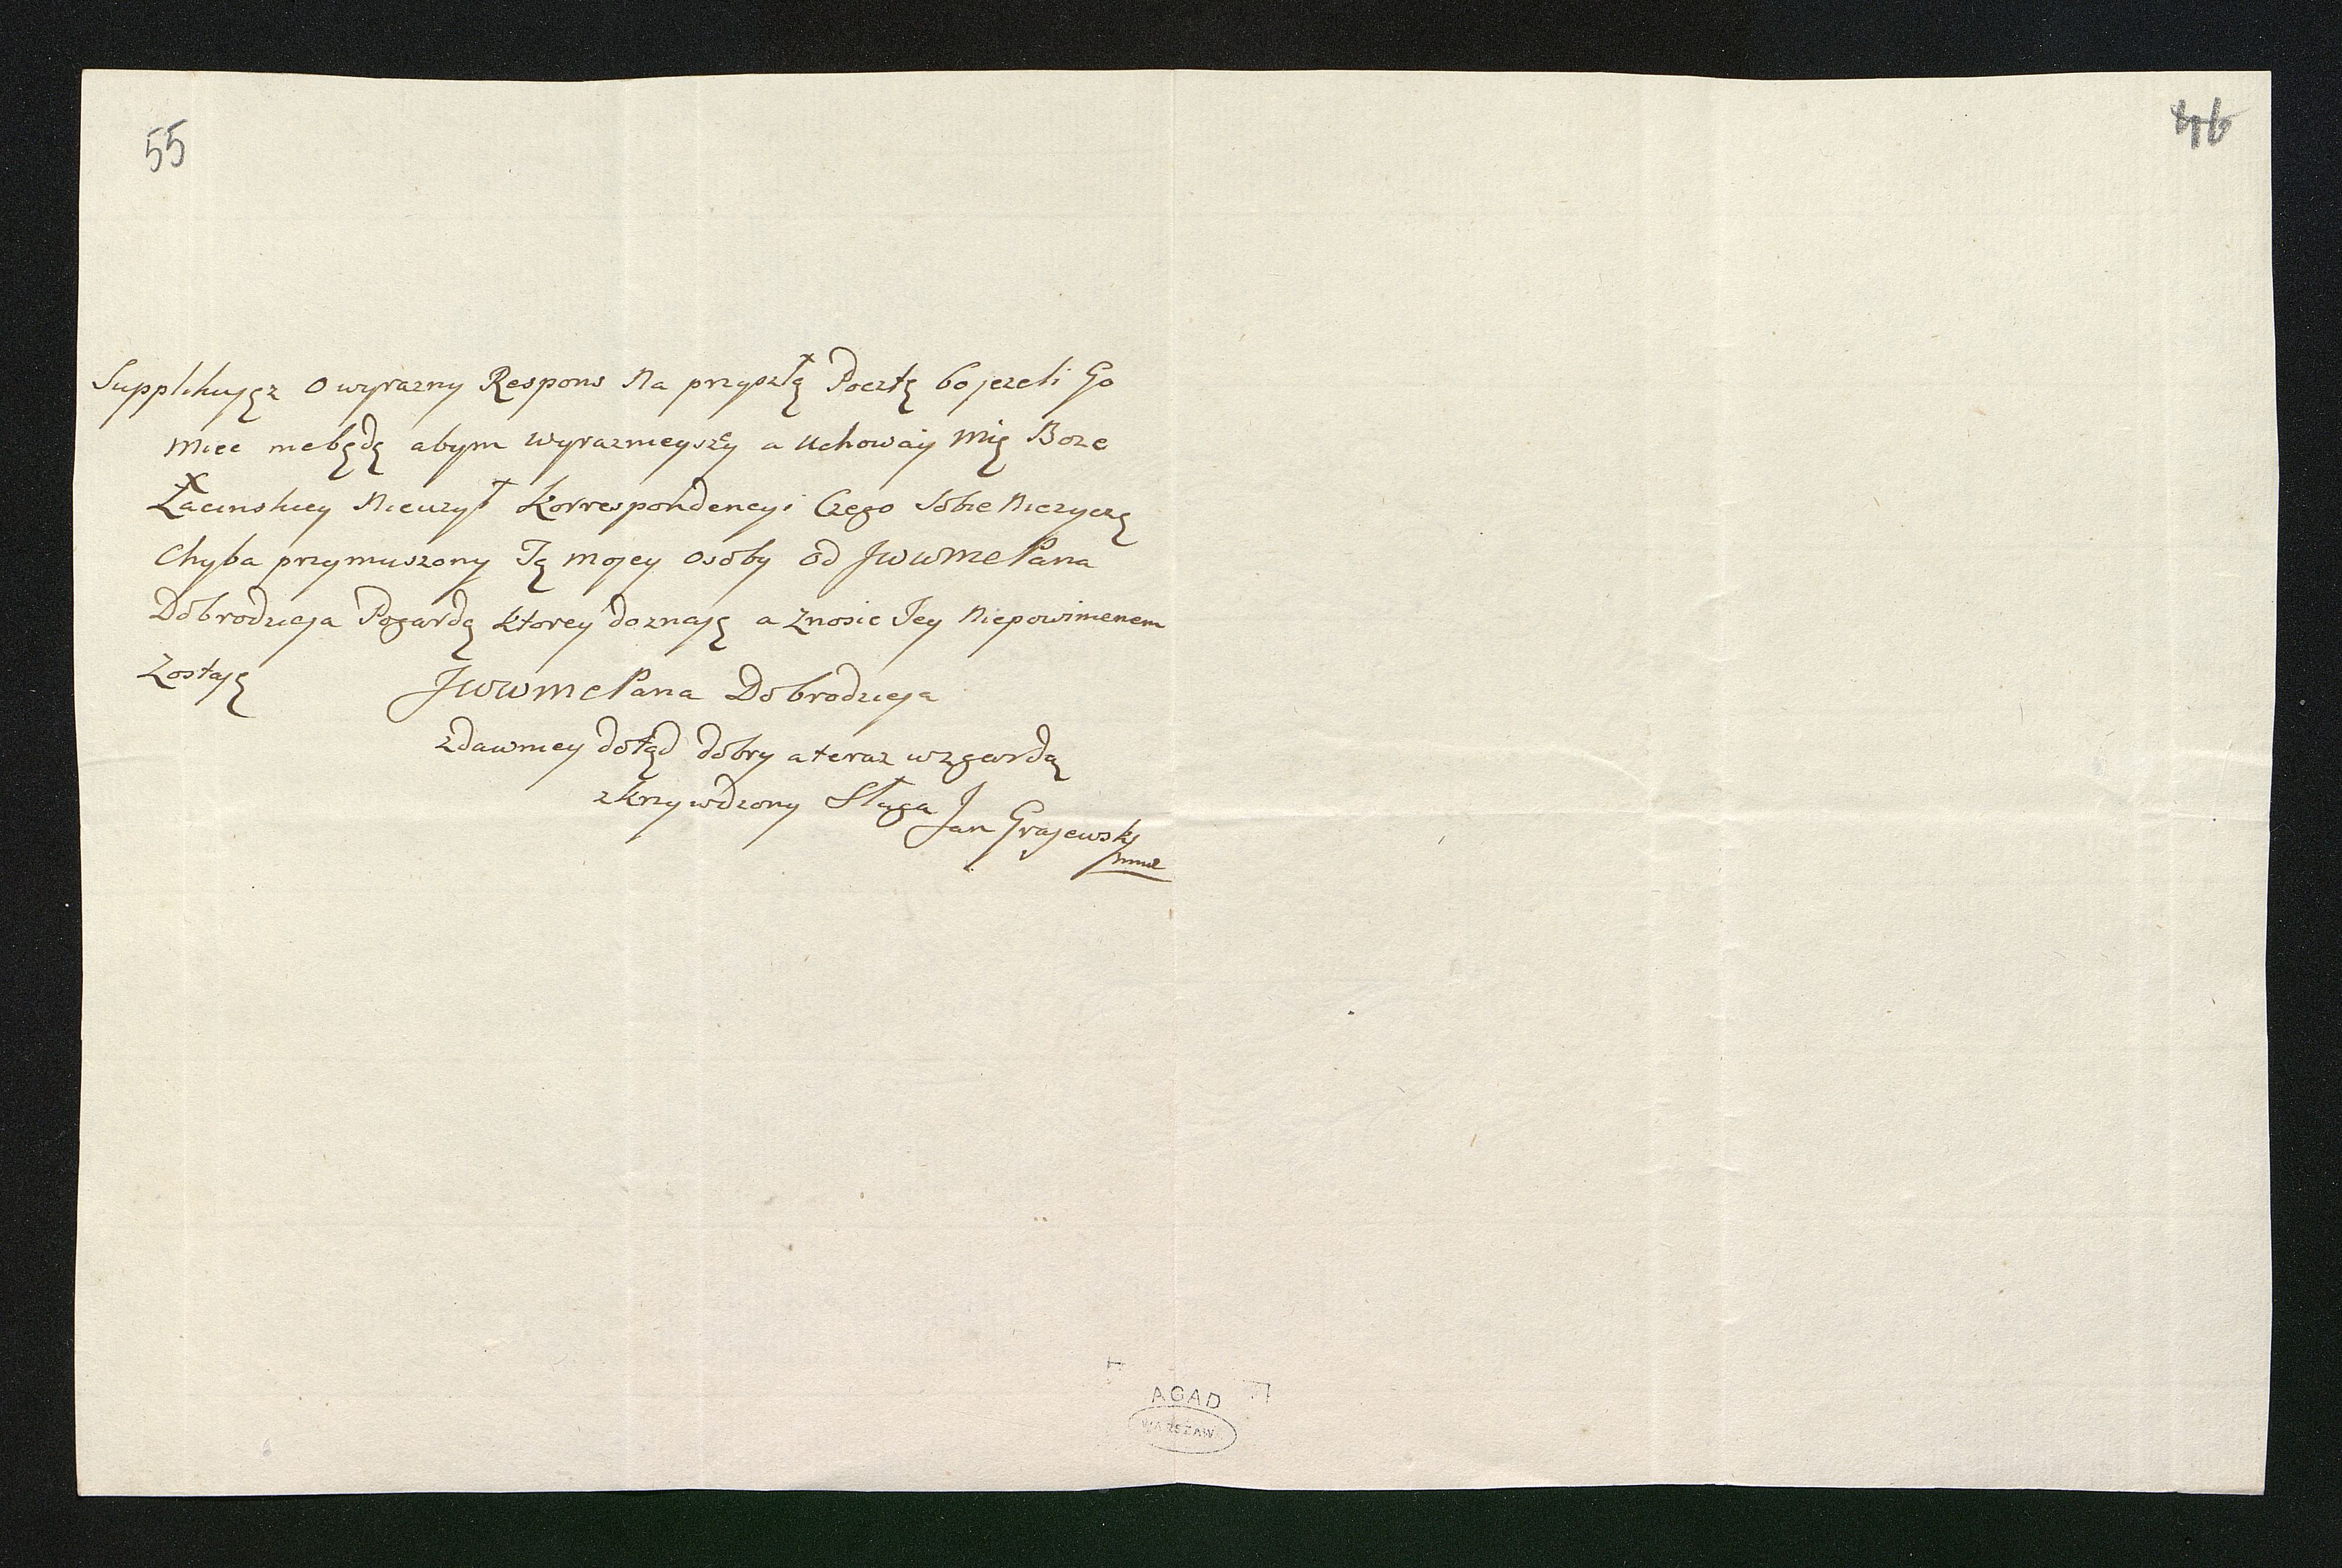 55
46
Supplikuięcz o wyrazny Respons Na przyszłą Pocztę bo jezeli Go
Miec niebędę abym wyraznieyszy a Uchoway Mię Boze
Łacinskiey Nieuzył Korrespondencyi Czego Sobie Nieżyczę
Chyba przymuszony Tą mojey osoby od JWWMcPana
Dobrodzieja Pogardą ktorey doznaję a znosic Jey Niepowinienem
Zostaję JWWMcPana Dobrodzieja
zdawniey dotąd dobry a teraz wzgardą
zkrzywdzony Sługa Jan Grajewsky
AGAD
WARSZAWA